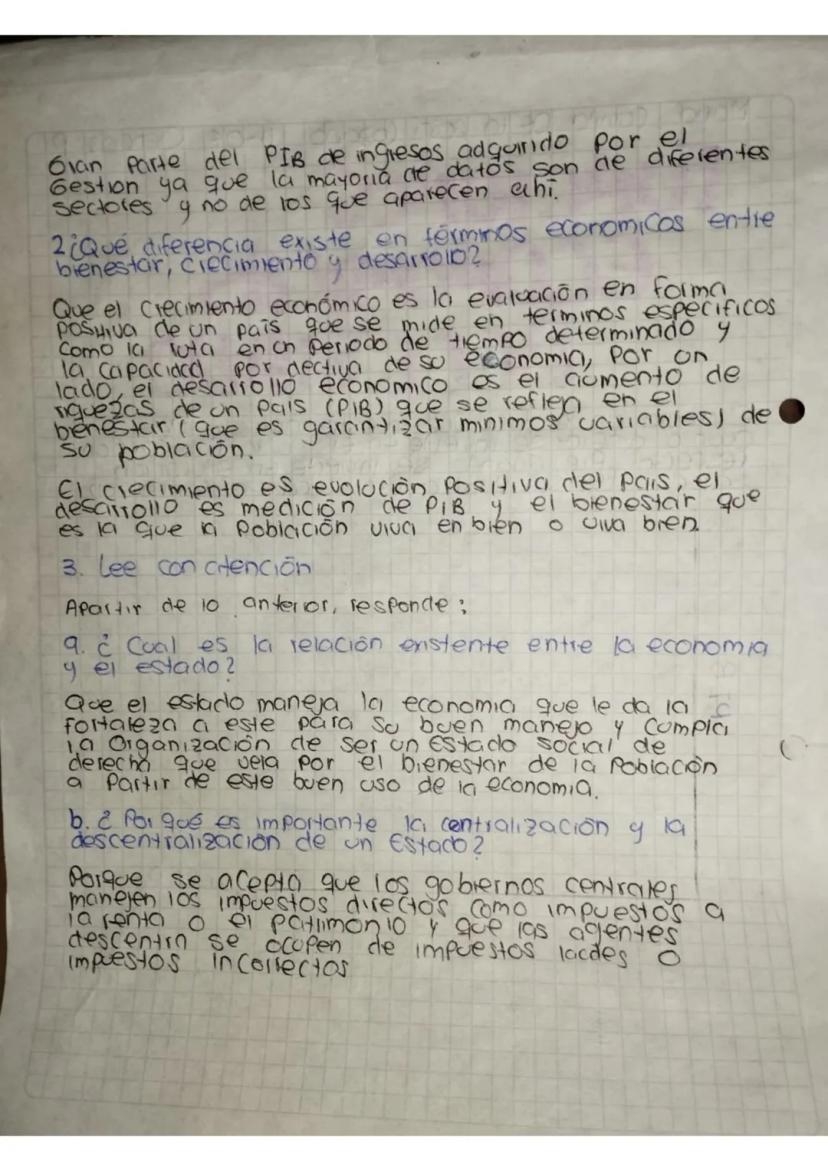 Gran parte del PIB de ingresos adquirido por el
Gestion ya que la mayoria de datos son de diferentes
sectores y no de los que aparecen ahi.
2¿Qué diferencia existe en términos economicos entre
bienestar, crecimiento y desarrollo?
Que el crecimiento económico es la evaluación en forma
positiva de un país que se mide en terminos especificos
como la ruta en un periodo de tiempo determinado y
la capacidad por dectiva de su economia, por on
lado, el desarrollo economico es el aumento de
riquezas de un pais (PIB) que se refleja en el
benestar (que es garantizar minimos variables) de
su población.
El crecimiento es evolución positiva del pais, el
desarrollo es medición de PIB y el bienestar que
es la que la población viva en bien o viva bien
3. Lee con atención
Apartir de lo anterior, responde:
a. ¿Cual es la relación existente entre la economia
y el estado?
Que el estado maneja la economia que le da la
fortaleza a este para su buen manejo y cumpla
la Organización de ser un Estado social de
derecho que vela por el bienestar de la Población
a partir de este buen uso de la economia.
b. ¿Por qué es importante la centralización y la
descentralización de un Estado?
Porque se acepta que los gobiernos centrales
manejen los impuestos directos como impuestos a
la renta o el patrimonio y que los agentes
descentra se ocupen de impuestos locales o
impuestos incorrectos